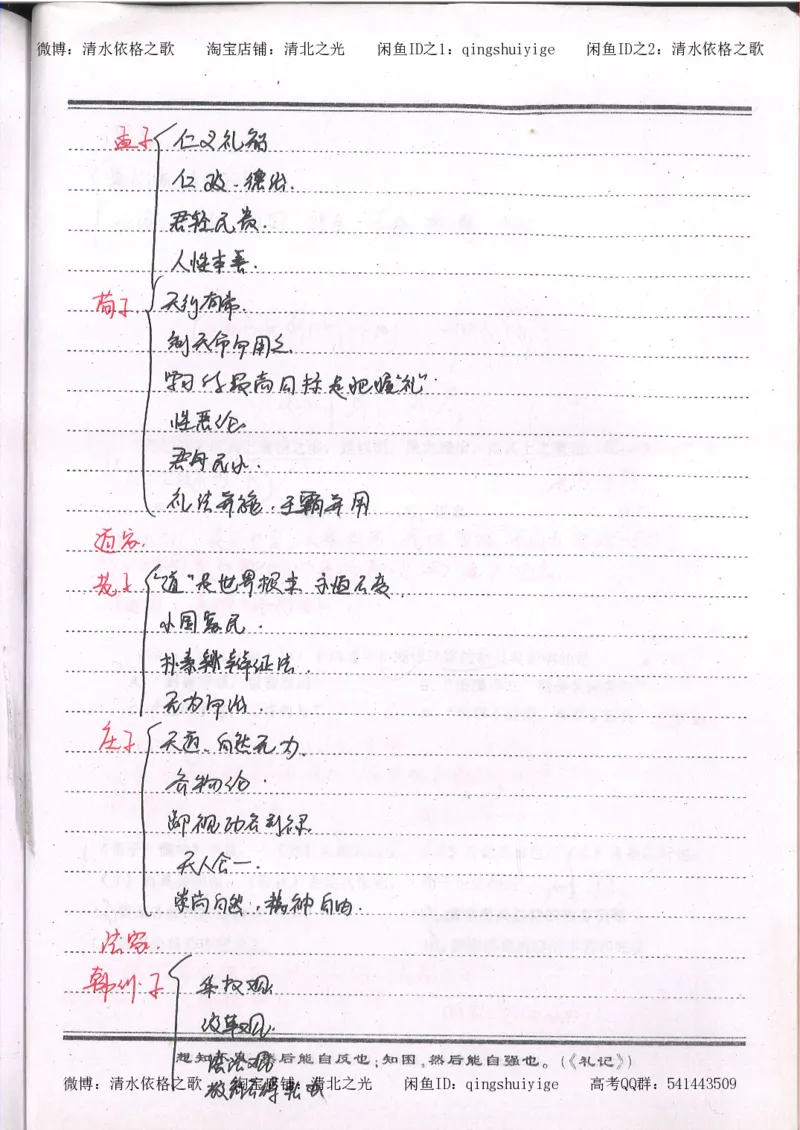 微博：清水依格之歌 淘宝店铺：清北之光 闲鱼ID之1：qingshuiyige 闲鱼ID之2：清水依格之歌
孟子 仁义礼智
仁政、德治.
君轻民贵.
人性本善.
荀子 天行有常.
制天命而用之.
学习的最高目标是把握“礼”.
性恶论
君舟民水.
礼法并施.王霸并用
道家.
老子 “道”是世界根本 永恒不变.
小国寡民.
朴素辩证法.
无为而治.
庄子 天道、自然无为.
齐物论
鄙视功名利禄
天人合一
崇尚自然,精神自由.
法家.
韩非子 集权观.
改革观.
法治观
想知 然后能自反也;知困,然后能自强也。(《礼记》)
微博：清水依格之歌 淘宝店铺：清北之光 闲鱼ID：qingshuiyige 高考QQ群：541443509